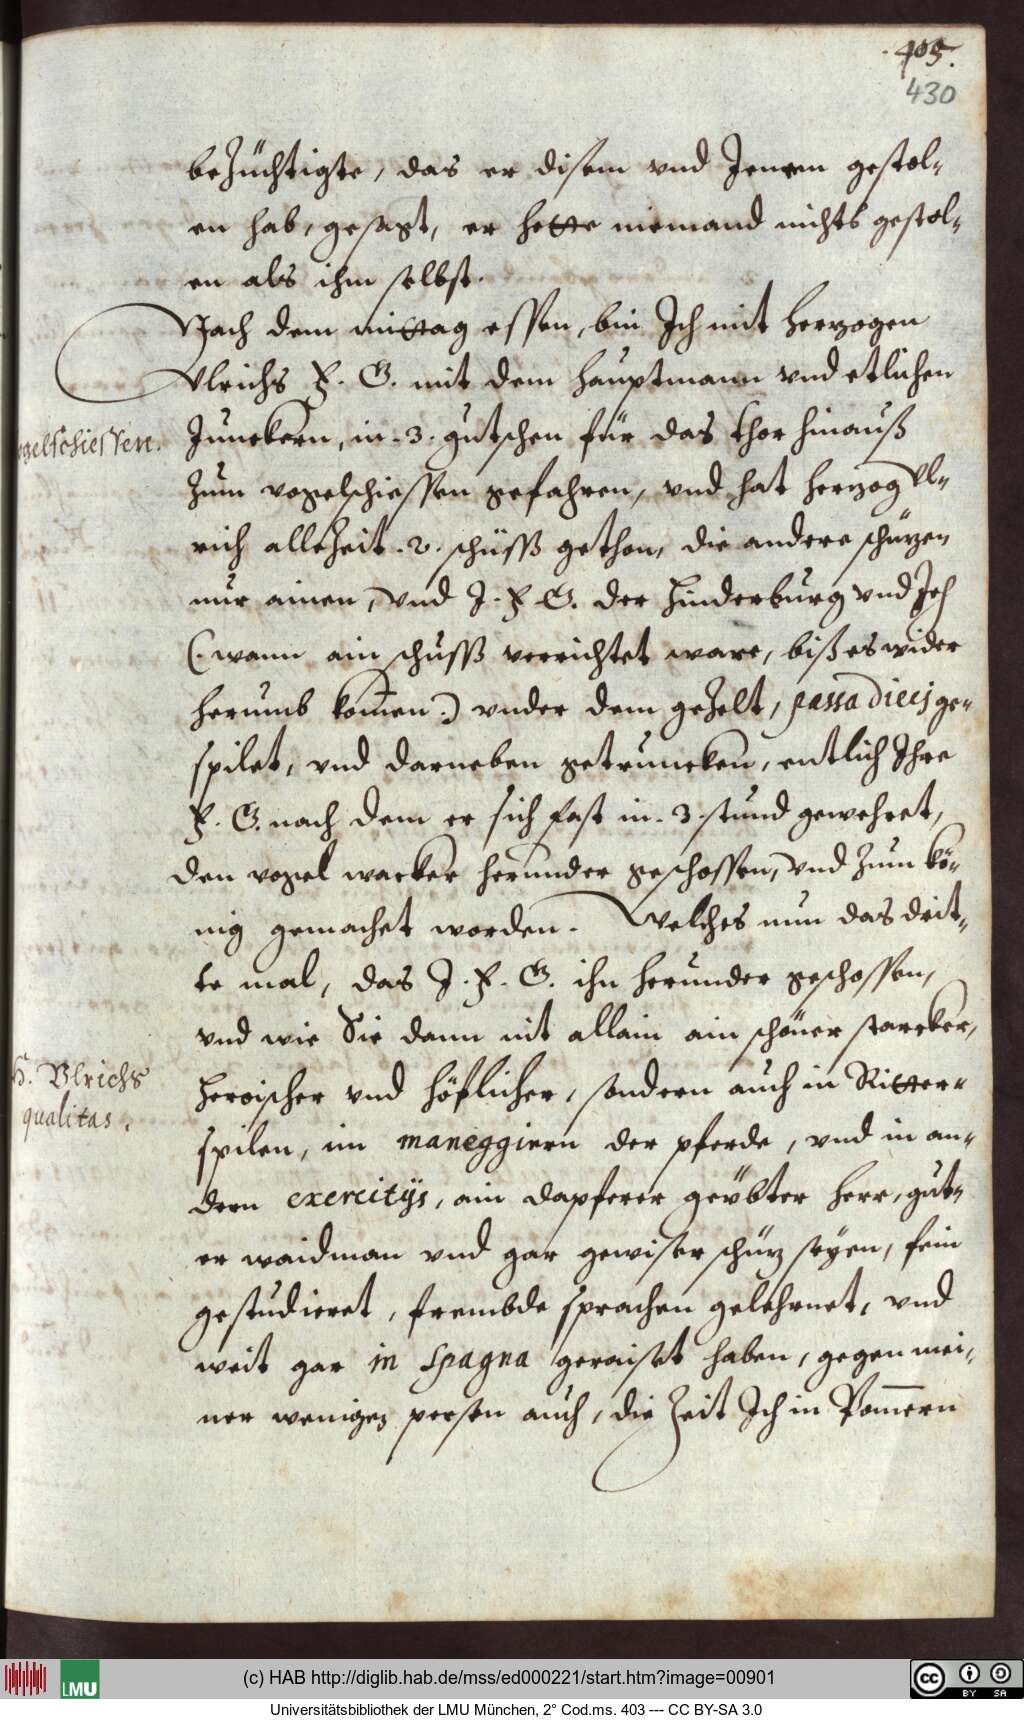 405.
430
beZüchtigte, das er disem vnd Jenem gestol-
en hab, gesagt, er hette niemand nichts gestol-
en als ihm selbst.
Nach dem mittag essen, bin Ich mit herzogen
Vlrichs F. G. mit dem hauptmann vnd etlichen
Junckern, in .3. gutschen für das thor hinauß
gelschiessen.
Zum vogelschiessen gefahren, vnd hat herzog Vl-
rich alleZeit .2. schüsß gethon, die andere schüzen
nur ainen, vnd J. F. G. der Hinderburg vnd Ich
(. wann ain schusß verrichtet ware, biß es wider
herumb kom̄en .) vnder dem geZelt, passa dieci ge-
spilet, vnd darneben getruncken, entlich Ihre
F. G. nach dem er sich fast in .3. stund gewehret,
den vogel wacker herunder geschossen, vnd Zum kö-
nig gemachet worden. Welches nun das drit-
te mal, das J. F. G. ihn herunder geschossen,
vnd wie Sie dann nit allain ain schöner starcker,
H. Vlrichs
qualitas.
heroischer vnd höflicher, sondern auch in Ritter-
spilen, im maneggiern der pferde, vnd in an-
dern exercitijs, ain dapferer geübter herr, gut-
er waidman vnd gar gewiser schüz seyen, fein
gestudieret, frembde sprachen gelehrnet, vnd
weit gar in Spagna geraiset haben, gegen mei-
ner wenigen person auch, die Zeit Ich in Pom̄ern
(c) HAB http://diglib.hab.de/mss/ed000221/start.htm?image=00901
LMU
BY SA
Universitätsbibliothek der LMU München, 2° Cod.ms. 403 --- CC BY-SA 3.0